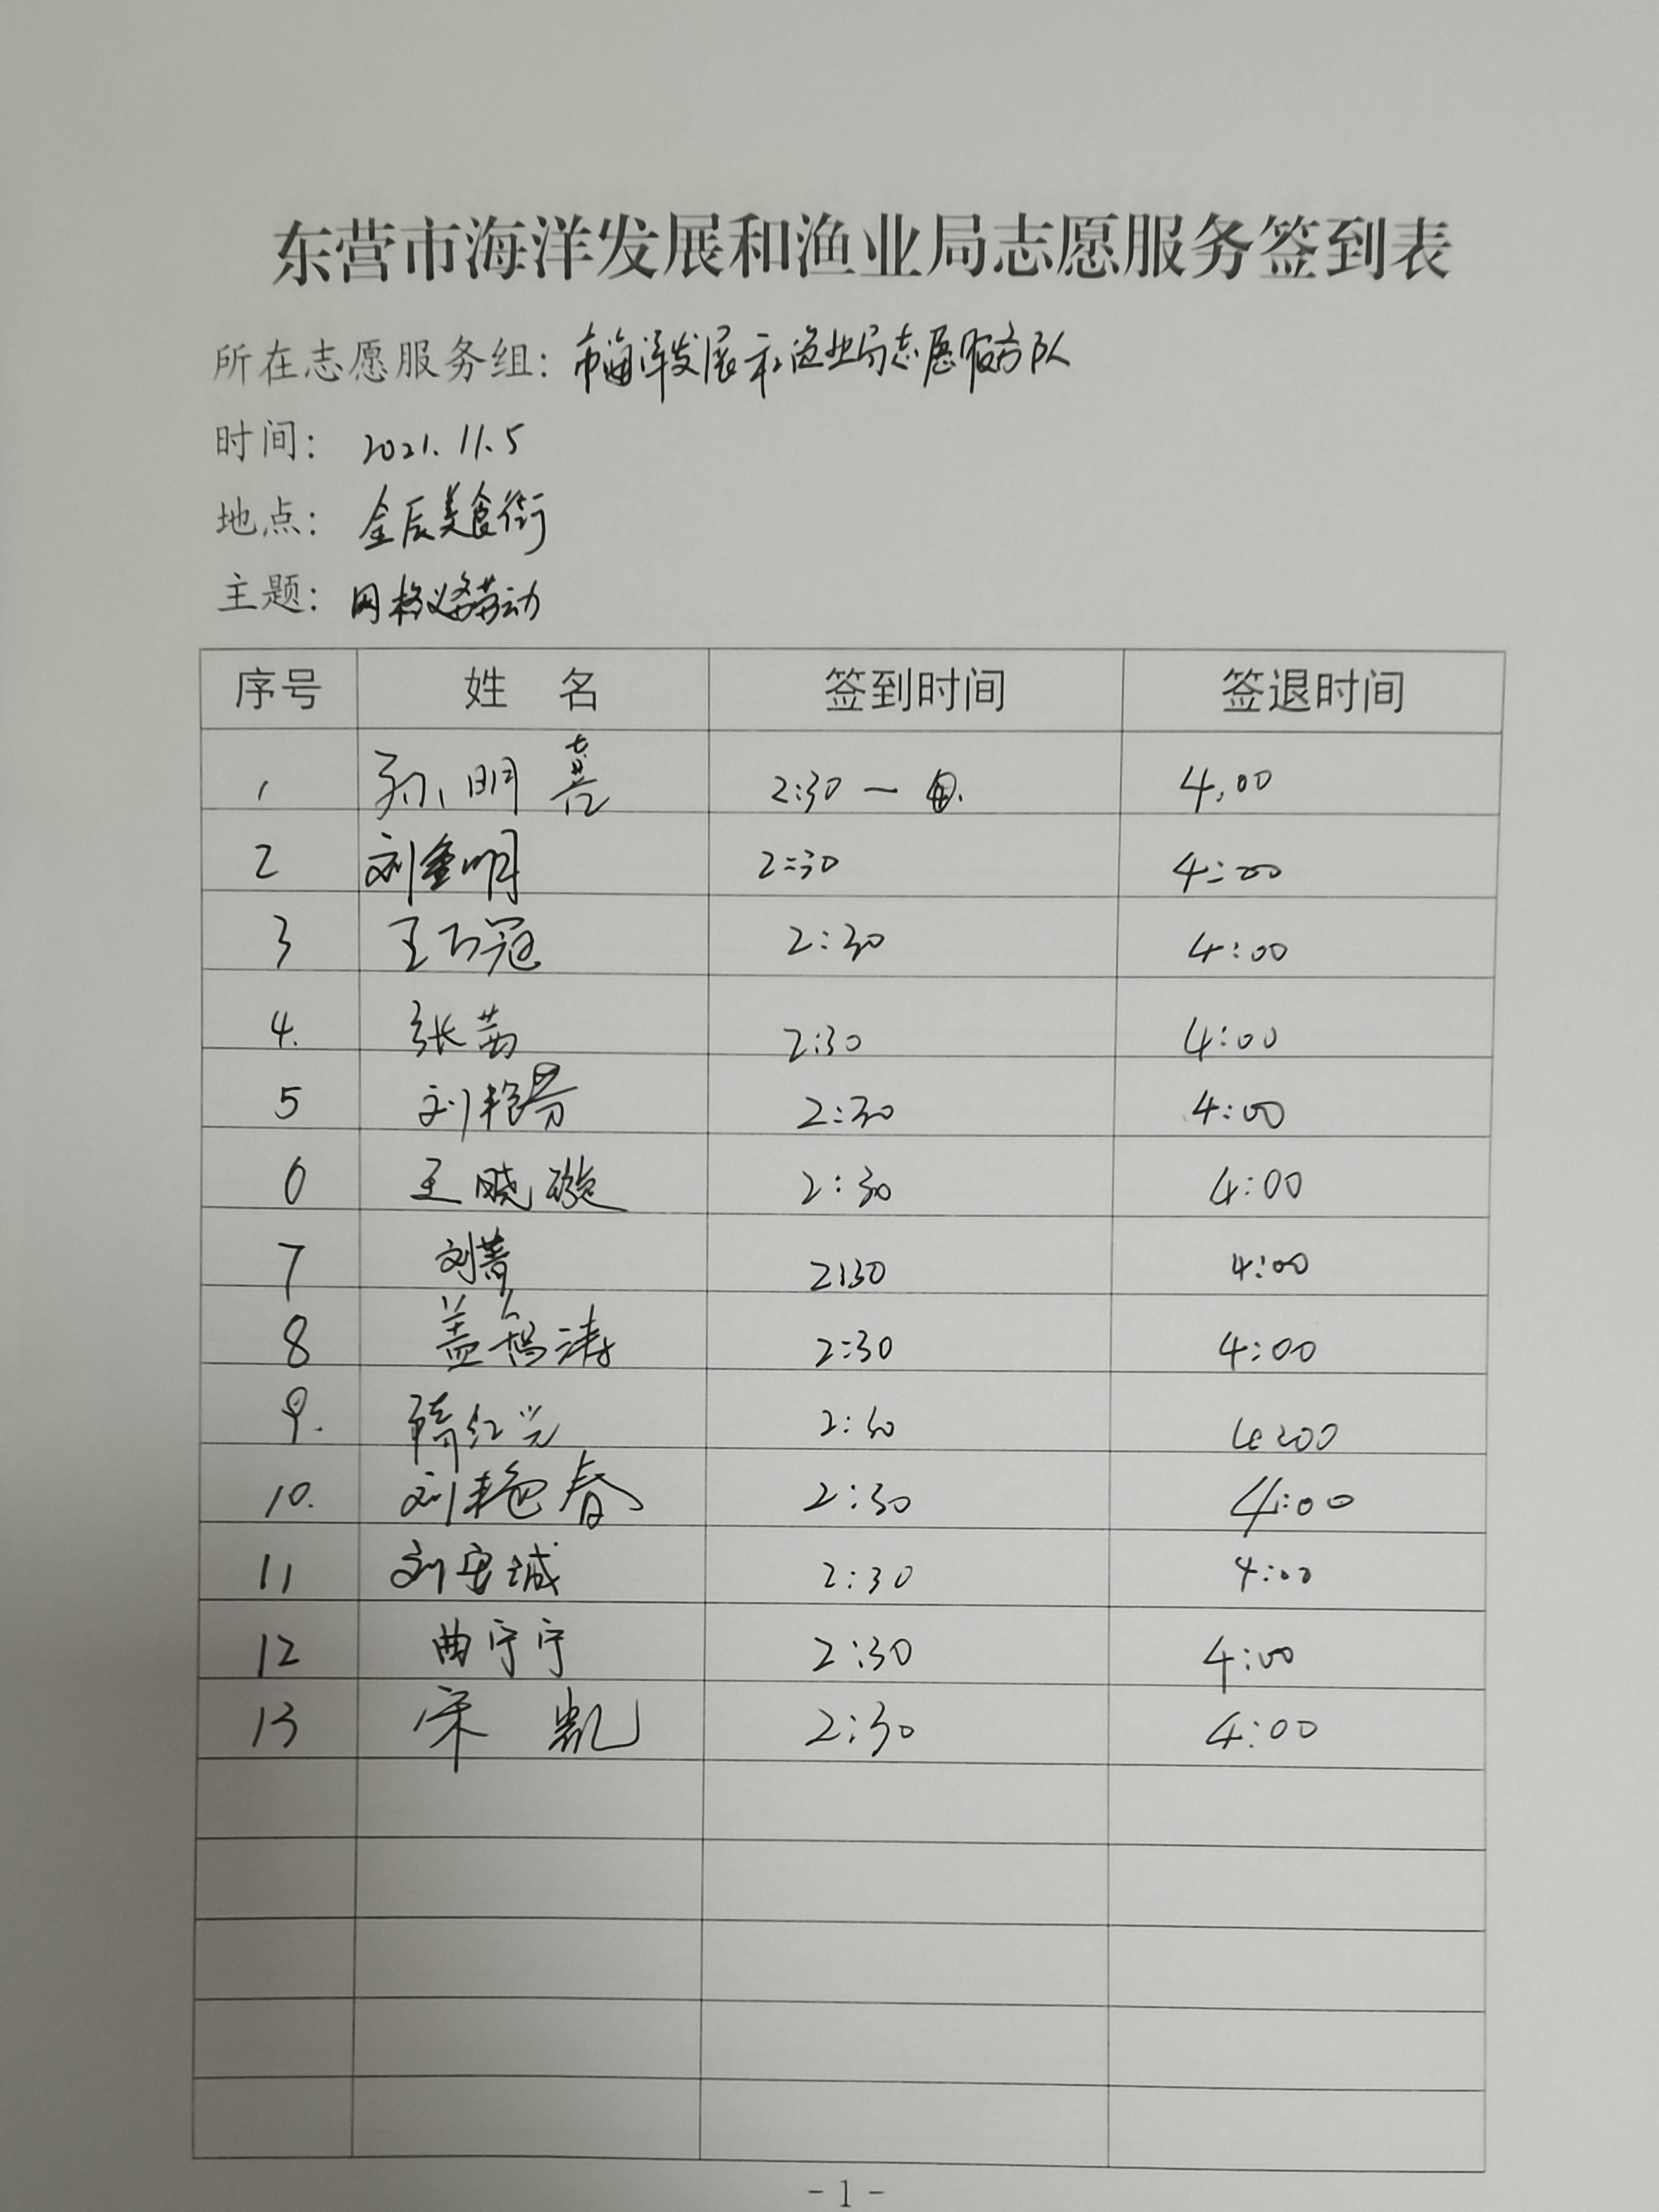 东营市海洋发展和渔业局志愿服务签到表
所在志愿服务组: 市海洋发展和渔业局志愿服务队
时间: 2021.11.5
地点: 金辰美食街
主题: 网格义务劳动
序号 姓 名 签到时间 签退时间
1 孙明喜 2:30 — 4.00
2 刘金明 2:30 4:00
3 王 冠 2:30 4:00
4. 张茜 2:30 4:00
5 刘艳芬 2:30 4:00
6 王晓璇 2:30 4:00
7 刘菁 2:30 4:00
8 盖 涛 2:30 4:00
9. 红兴 2:30 4:00
10. 刘艳春 2:30 4:00
11 刘宝城 2:30 4:00
12 曲宁宁 2:30 4:00
13 宋 凯 2:30 4:00
- 1 -